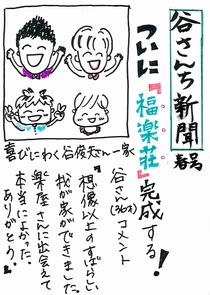 谷さんち新聞
春号
ついに『福楽荘』完成する!
喜びにわく谷俊夫さん一家
谷さん(36才)コメント
"想像以上のすばらしい
我が家ができました。
楽座さんに出会えて
本当によかった。
ありがとう。"